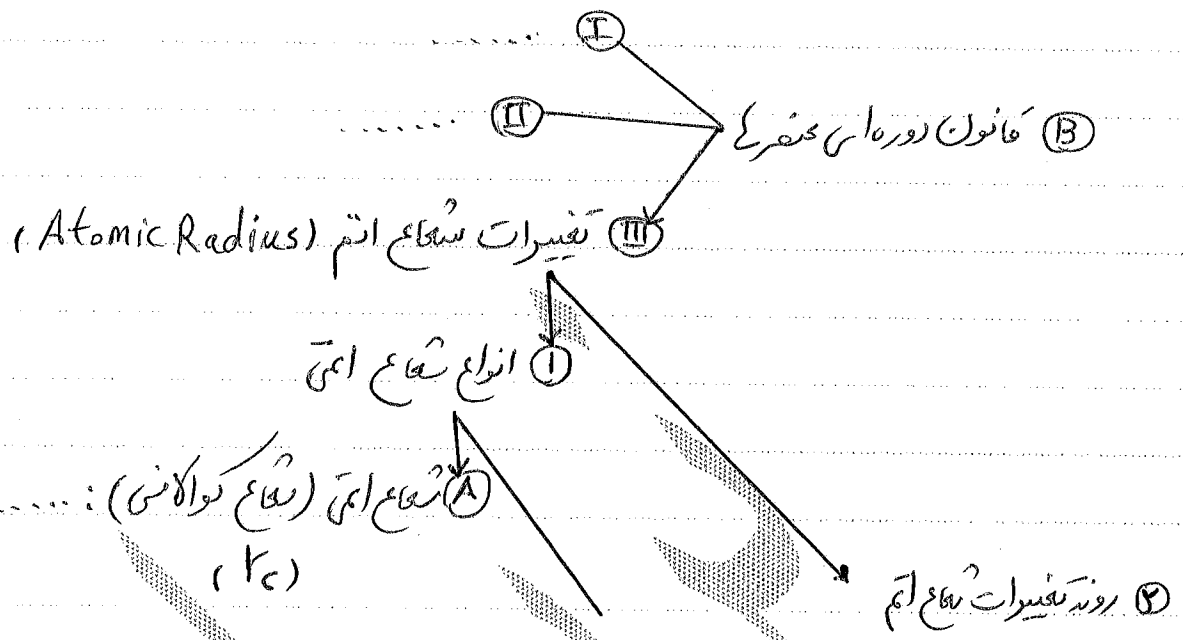 Ⓘ ......
Ⓑ قانون دوره‌ای عنصرها
Ⓘ︎Ⓘ ......
(III) تغییرات شعاع اتم (Atomic Radius)
① انواع شعاع اتمی
Ⓐ شعاع اتمی (شعاع کوالانسی): .....
(rc)
② روند تغییرات شعاع اتم